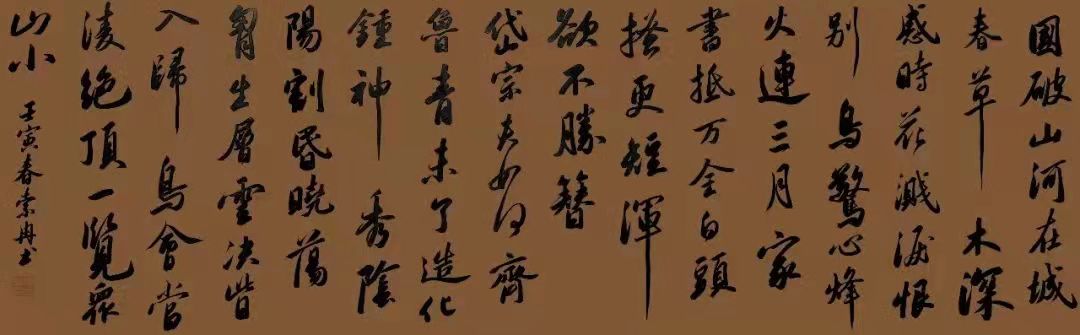 國破山河在城
春草木深
感時花濺淚恨
别鳥驚心烽
火連三月家
書抵万金白頭
搔更短渾
欲不勝簪
岱宗夫如何齊
魯青未了造化
鍾神秀陰
陽割昏曉蕩
胷生層雲决眥
入歸鳥會當
淩絕頂一覽衆
山小
壬寅春书